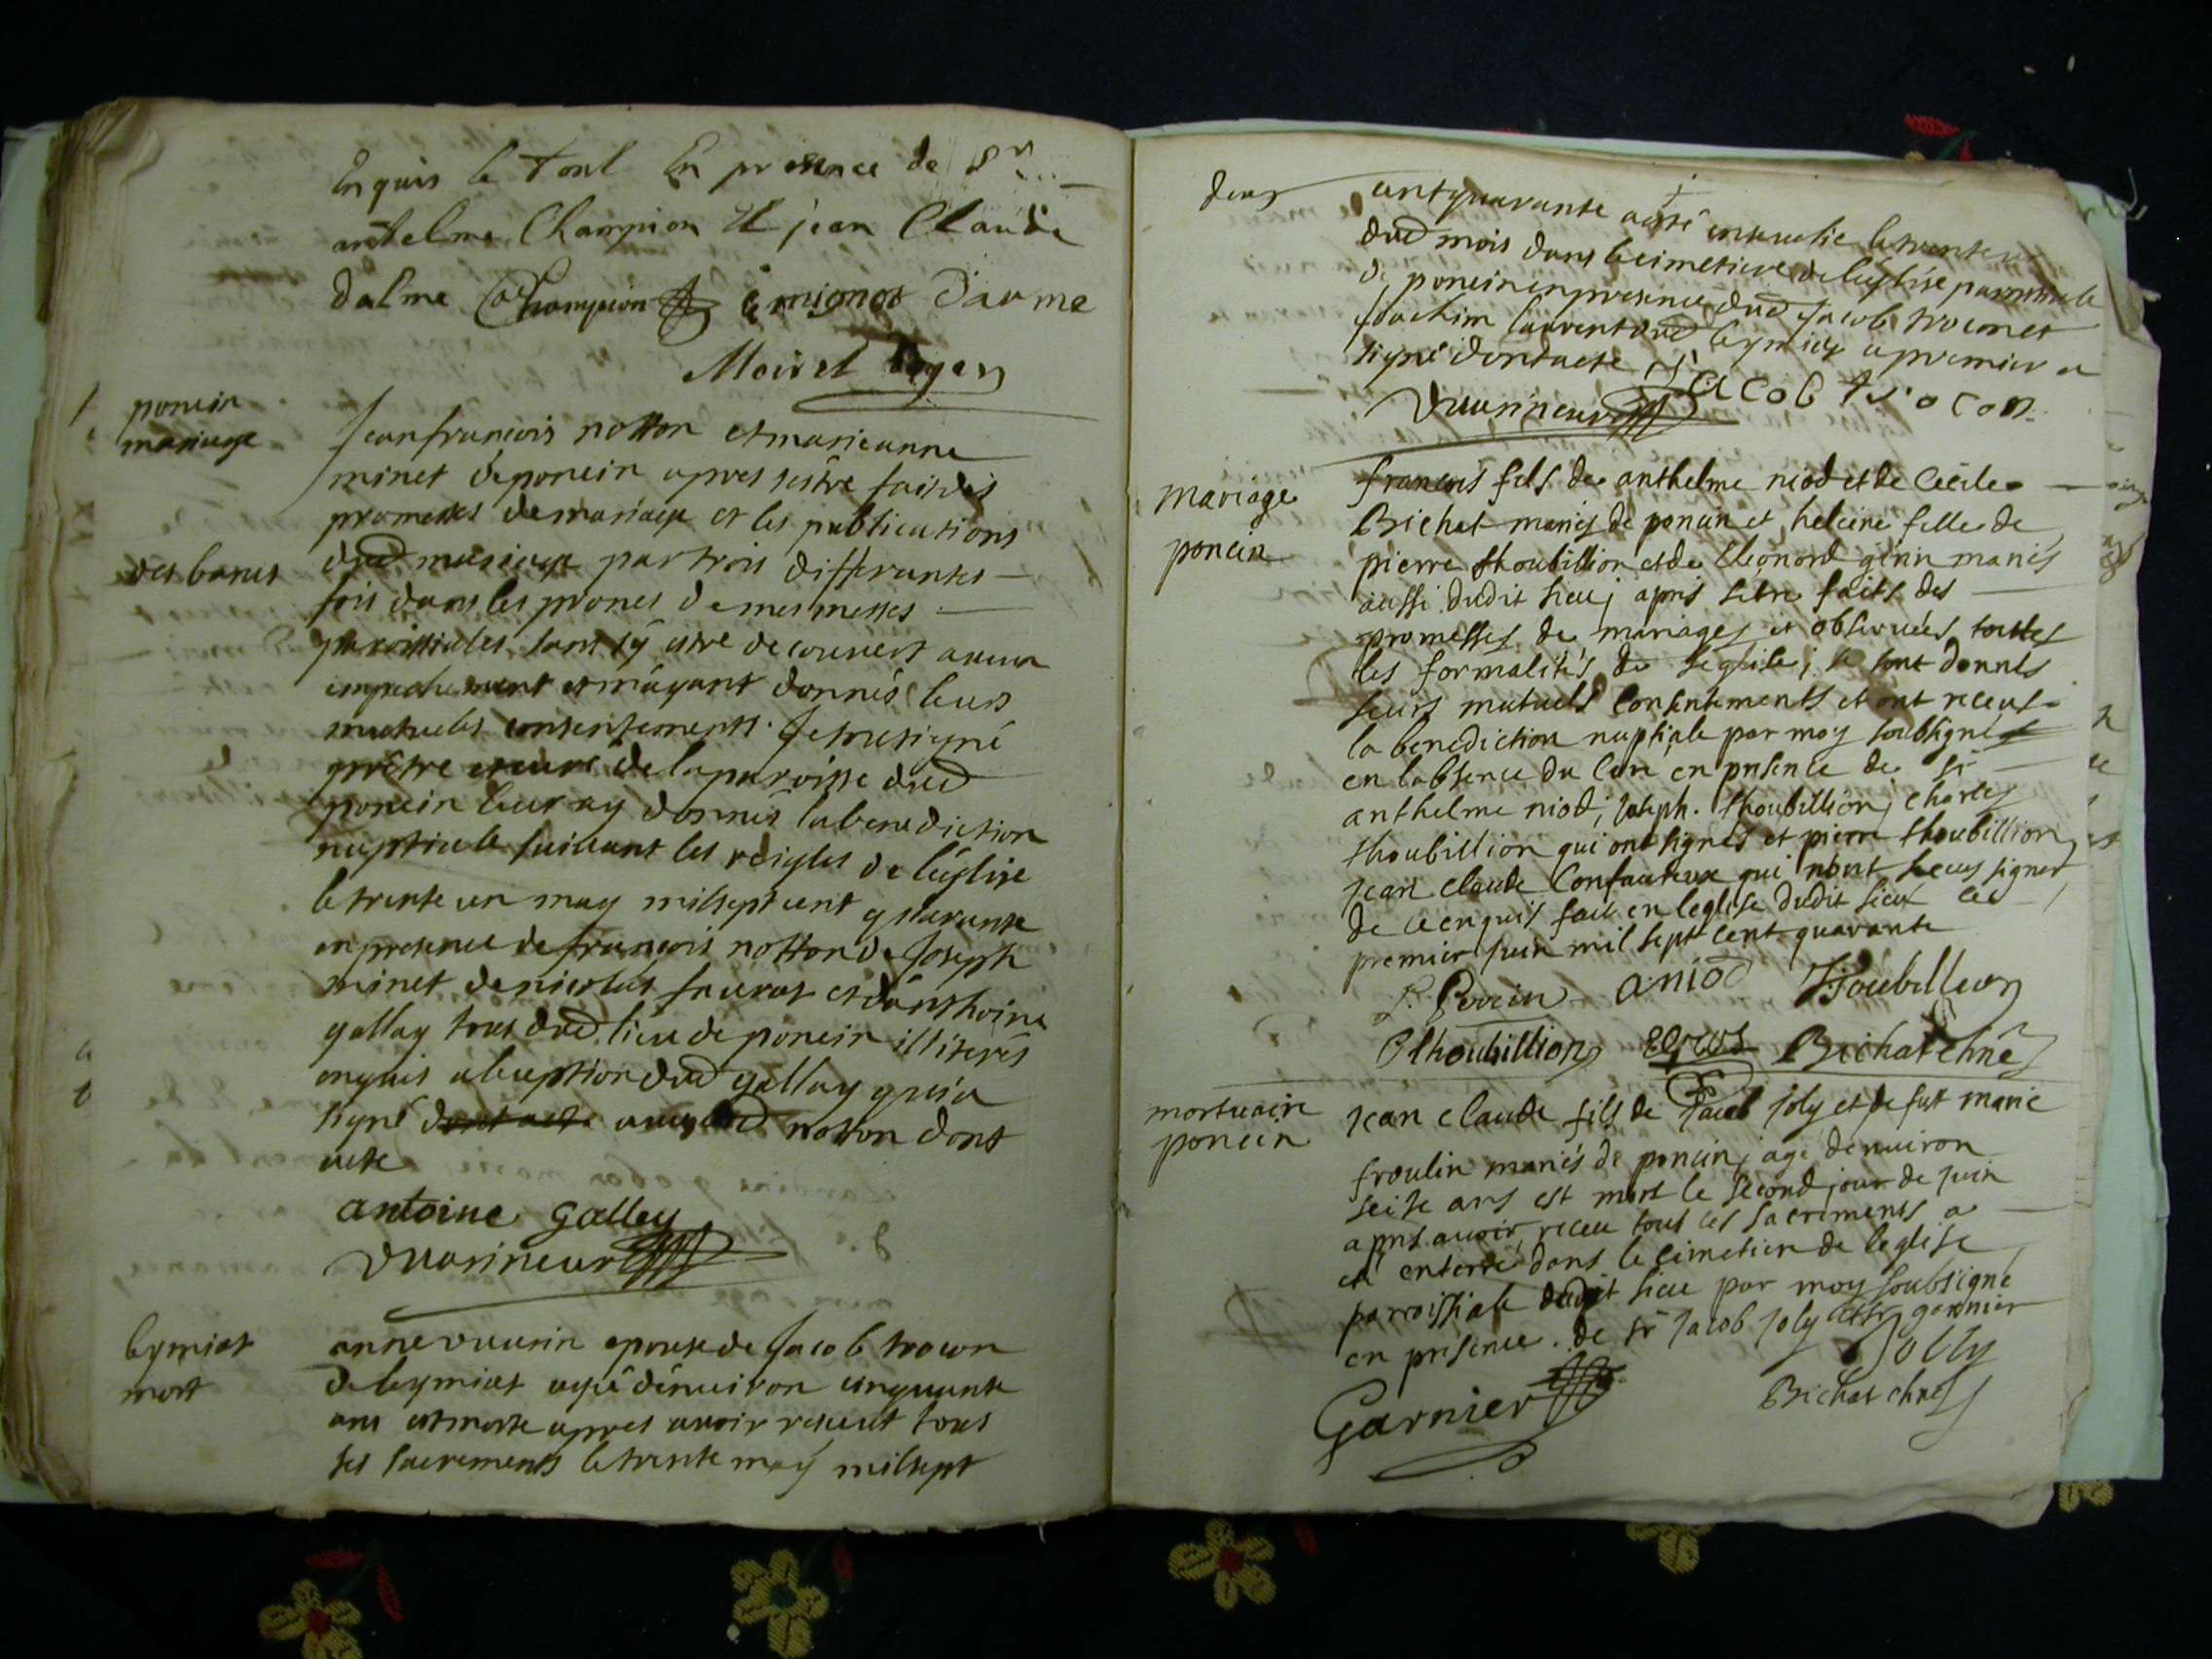 Enquis le tout En presence de Sr
anthelme Champion Et jean Claude
dalme Champion C mignot Darme
Moirel Doyen
poncin
mariage
Jean francois notton et marieanne
minet de poncin apres sestre fait des
promesses de mariage et les publications
des bancs
dud mariage par trois differantes
fois dans les prones de mes messes
paroissiales sans sÿ estre decouvert aucun
empechement et mäyant donnés leurs
mutuels consentements Je sousigné
prêtre et curé de la paroisse dud
poncin leur ay donnés la benediction
nuptiale suivant les reigles de l'église
le trente un may mil sept cent quarante
en presence de francois notton de Joseph
minet de nicolas favrat et d'anthoine
gallay tous dud lieu de poncin illiterés
enquis a lexeption dud gallay qui a
signé dont acte avec led notton dont
acte
antoine galley
Vuarineur
leymiat
mort
anne vuarin epouse de Jacob trocon
de leymiat agée d'enuiron cinquante
ans est morte apres avoir receut tous
ses sacrements le trente maÿ mil sept
cent quarante a esté ensevelie le trente
deux
dud mois dans le cimetiere de l'église paroissiale
de poncin en presence dud Jacob trocon et
Joachim laurent dud leymiat le premier a
signé dont acte
Jacob trocon
Vuarineur
mariage
poncin
francois fils de anthelme niod et de Cécile
Bichat mariés de poncin et heleine fille de
pierre thoubillion et de Eleonord génin mariés
aussi dudit lieu; apris setre faits des
promesses de mariages et observées toutes
les formalités de leglise; se sont donnés
leurs mutuels consentements et ont receus
la benediction nuptiale par moy soubsigné
en labsence du Curé en presence de sr
anthelme niod; joseph thoubillion; charles
thoubillion qui ont signés et pierre thoubillion
jean claude Confauteux qui nont sceus signer
de ce enquis fait en leglise dudit lieu ce
premier juin mil sept cent quarante
aniod Thoubillion
C thoubillion Bichat chne
mortuaire
poncin
jean claude fils de Jacob joly et de fut marie
froulin mariés de poncin; age denuiron
seise ans est mort le second jour de juin
apris avoir receu tous les sacrements a
eté enterré dans le cimetiere de leglise
parroissiale dudit lieu par moy soubsigné
en presence de sr jacob joly et sr garnier
Jolly
Garnier
Bichat chne